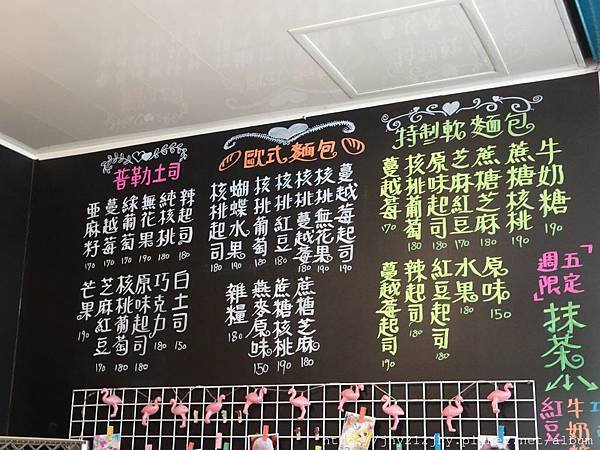 普勒土司
辣起司 180
純核桃 190
無花果 180
綠葡萄 190
蔓越莓 170
亞麻籽 170
白土司 150
巧克力 180
原味起司 190
核桃葡萄 180
芝麻紅豆 180
芒果 190
歐式麵包
蔓越莓起司 190
核桃無花果 190
核桃蔓越莓 180
核桃紅豆 180
核桃葡萄 180
蝴蝶水果 190
核桃起司 180
蔗糖芝麻
蔗糖核桃 190
燕麥原味 150
雜糧 180
特制軟麵包
牛奶糖 190
蔗糖核桃 190
蔗糖芝麻 180
芝麻紅豆 180
原味起司 180
核桃葡萄 180
蔓越莓 170
原味 150
水果 180
紅豆起司 180
辣起司 180
蔓越莓起司 190
週五限定
抹茶
牛奶
紅豆